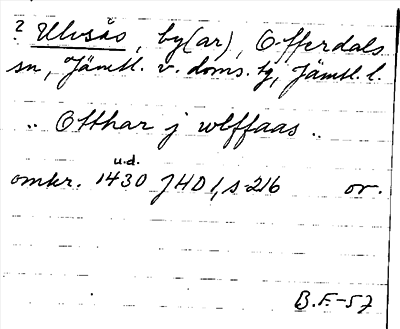 ? Ulvsås, by(ar), Offerdals
sn, Jämtl. v. doms. tg, Jämtl. l.
.. Otthar j wlffaas ..
u.d.
omkr. 1430 JHD 1, s 216 or.
B.F.-57